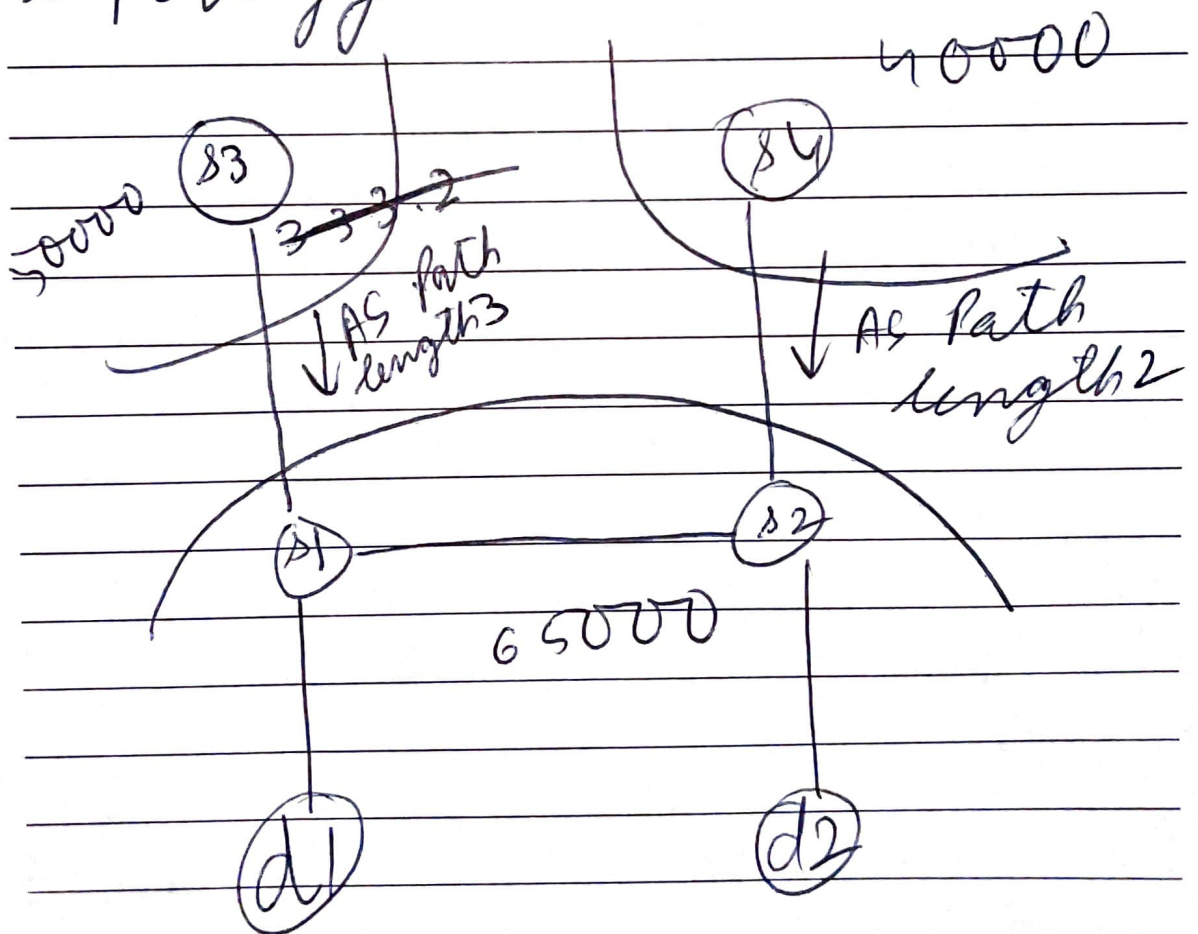 40000
s3
s4
333.2
AS Path
length3
AS Path
length2
s1
s2
65000
d1
d2